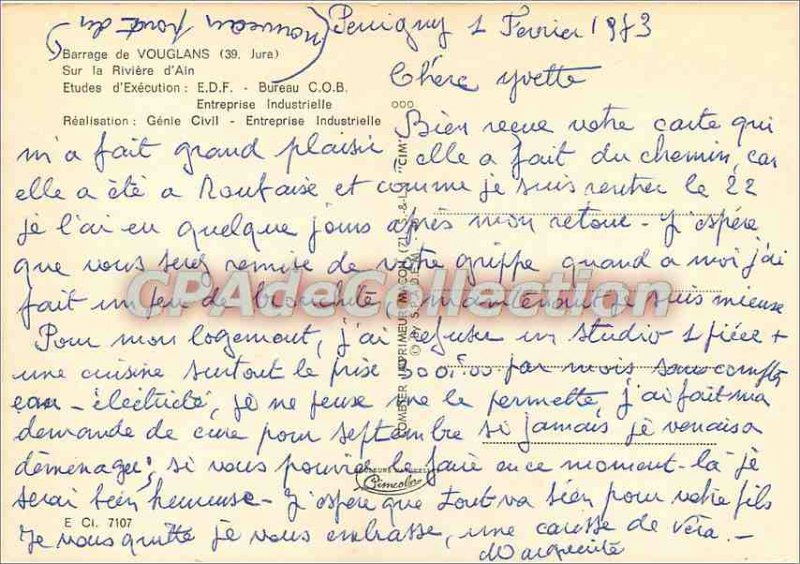 (nouveau pont du
Perrigny 1 Fevrier 1973
Barrage de VOUGLANS (39. Jura)
Sur la Rivière d'Ain
Etudes d'Exécution : E.D.F. - Bureau C.O.B.
Entreprise Industrielle
Réalisation : Génie Civil - Entreprise Industrielle
Chère Yvette
Bien reçue votre carte qui
m'a fait grand plaisir elle a fait du chemin, car
elle a été a Roubaise et comme je suis rentrer le 22
je l'ai eu quelque jours après mon retour - J'espére
que vous serez remise de votre grippe quand a moi j'ai
fait un peu de bronchite, maintenant je suis mieuse
Pour mon logement, j'ai refuser un studio 1 piéce +
une cuisine surtout le prise 300f.00 par mois sans compter
eau - électricité, je ne peuse me le permette, j'ai fait ma
demande de cure pour septembre si jamais, je venais a
déménager, si vous pouviez le faire en ce moment-là je
serai bien heureuse - J'espére que tout va bien pour votre fils
Je vous quitte je vous embrasse, une caresse de Véra. -
Marguerite
E Cl. 7107
COMBIER IMPRIMEUR MACON (71) S. & L. "CIM"
Cimcolor
CPAdeCollection